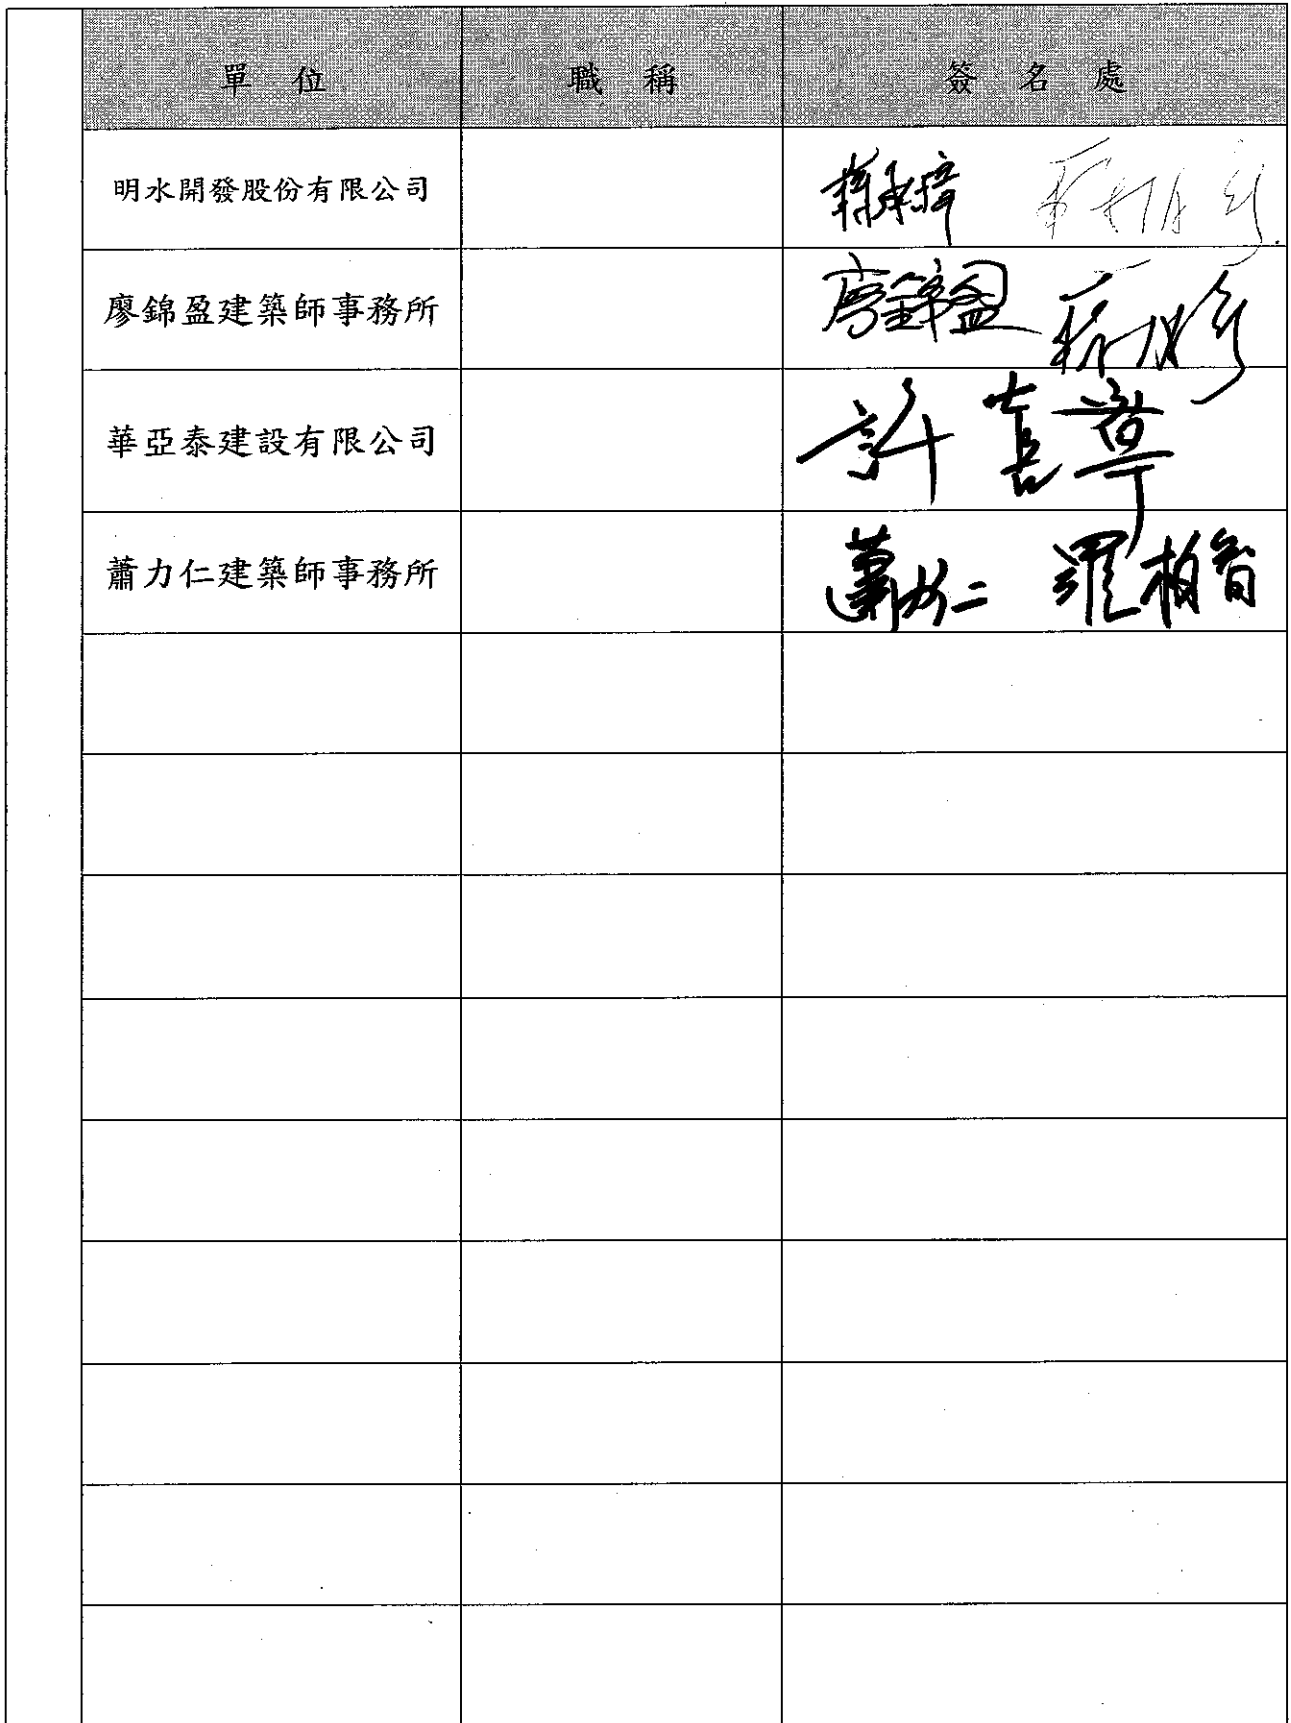 單位 職稱 簽名處
明水開發股份有限公司
廖錦盈建築師事務所 廖錦盈
華亞泰建設有限公司 許
蕭力仁建築師事務所 蕭力仁 羅柏智